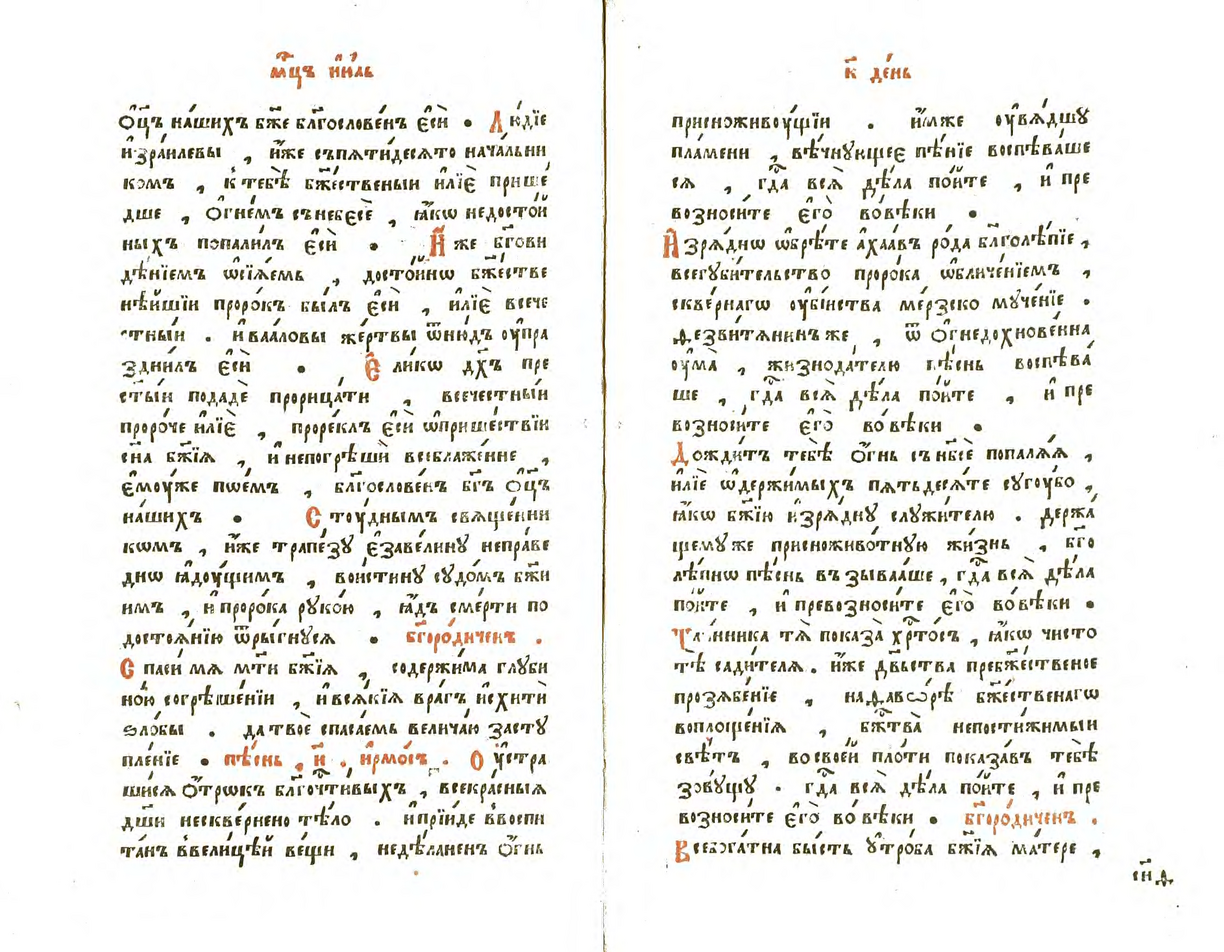 мц҃ъ іи҃ль
ѻц҃ъ на́шихъ бж҃е блгⷭ҇ослове́нъ є҆сѝ • Лю́дїе
и҆зра́илевы , и҆́же съпѧтидесѧ́то нача́льни
комъ , к тебѣ̀ бжⷭ҇ественыи и҆лїѐ прише́
дше , ѻ҆гне́мъ съ небесѐ , ꙗ҆́кѡ недосто́й
ныхъ попали́лъ є҆сѝ • И҆́же бг҃ови
дѣ́нїемъ ѡ҆сїѧ́емь , досто́йнѡ бжⷭ҇естве
нѣ́йшїи проро́къ бы́лъ є҆сѝ , и҆лїѐ всече
стны́и . и҆ ваа́ловы же́ртвы ѿню́дъ ᲂу҆пра
здни́лъ є҆сѝ • Е҆ли́кѡ дх҃ъ пре
ст҃ы́и подадѐ прорица́ти , всече́стныи
проро́че и҆лїѐ , проре́клъ є҆сѝ ѡ҆прише́ствїи
сн҃а бж҃їѧ , и҆ непогрѣшѝ всеблаже́нне ,
є҆моу́же пое́мъ , блгⷭ҇ослове́нъ бг҃ъ ѻц҃ъ
на́шихъ • С тоу́днымъ свѧще́нни
комъ , и҆́же трапе́зꙋ є҆заве́линꙋ непра́ве
днѡ ꙗ҆доу́щимъ , вои́стинꙋ сꙋдо́мъ бж҃и
имъ , и҆ проро́ка рꙋко́ю , ꙗ҆́дъ сме́рти по
достоѧ́нїю ѿры́гнꙋсѧ • бг҃оро́диченъ .
С пасѝ мѧ мт҃и бж҃їѧ , содержи́ма глꙋби
но́ю согрѣше́нїи , и҆ всѧ́кїѧ вра́гъ и҆схитѝ
ѕло́бы . да твоѐ спаса́емь велича́ю застꙋ
пле́нїе • пѣ́снь . и҃ . и҆рмо́съ . О у҆стра
ши́сѧ ѻ҆́трокъ блгⷭ҇очⷭ҇тивыхъ , всекра́сныѧ
дш҃и нескве́рнено тѣ́ло . и҆ прїи́де ввоспи
та́нъ ввели́цѣй ве́щи , недѣ́ланенъ ѻ҆́гнь
к҃ де́нь
присноживоу́щїи . и҆́мже ᲂу҆вѧ́дшꙋ
пла́мени , вѣ́чнꙋющеє пѣ́нїе воспѣва́ше
сѧ , гдⷭ҇а всѧ̑ дѣ́ла по́йте , и҆ пре
возноси́те є҆го̀ во вѣ́ки •
И҆зрѧ́днѡ ѡ҆брѣ́те а҆хаа́въ ро́да блгⷭ҇олѣ́пїе ,
всегꙋби́тельство проро́ка ѡ҆бличе́нїемъ ,
скве́рнагѡ ᲂу҆бі́иства ме́рзско мꙋче́нїе .
Ѳезвитѧ́нинъ же , ѿ ѻ҆гнедохнове́нна
ᲂу҆ма̀ , жизнода́телю пѣ́снь воспѣва́
ше , гдⷭ҇а всѧ̑ дѣ́ла по́йте , и҆ пре
возноси́те є҆го̀ во вѣ́ки •
Д ожди́тъ тебѣ̀ ѻ҆́гнь съ нб҃сѐ попалѧ́ѧ ,
и҆лїѐ ѡ҆держи́мыхъ пѧтьдесѧ́те сꙋгоу́бо ,
ꙗ҆́кѡ бж҃їю и҆зрѧ́днꙋ слꙋжи́телю . держа́
щемꙋ же присноживо́тнꙋю жи́знь , бг҃о
лѣ́пнѡ пѣ́снь въ зыва́аше , гдⷭ҇а всѧ̑ дѣ́ла
по́йте , и҆ превозноси́те є҆го̀ во вѣ́ки •
Т а́инника тѧ̀ показа̀ хрⷭ҇то́съ , ꙗ҆́кѡ чисто
тѣ̀ сади́телѧ . и҆́же двⷭ҇ьства пребжⷭ҇е́ственое
прозѧбе́нїе , на Ѳавѡ́рѣ бжⷭ҇е́ственагѡ
воплоще́нїѧ , бжⷭ҇тва̀ непостижи́мыи
свѣ́тъ , во свое́и пло́ти показа́въ тебѣ̀
зовꙋ́щꙋ . гдⷭ҇а всѧ̑ дѣ́ла по́йте , и҆ пре
возноси́те є҆го̀ во вѣ́ки • бг҃оро́диченъ .
В себога́тна бы́сть ᲂу҆тро́ба бж҃їѧ ма́тере ,
сн҃ѳ